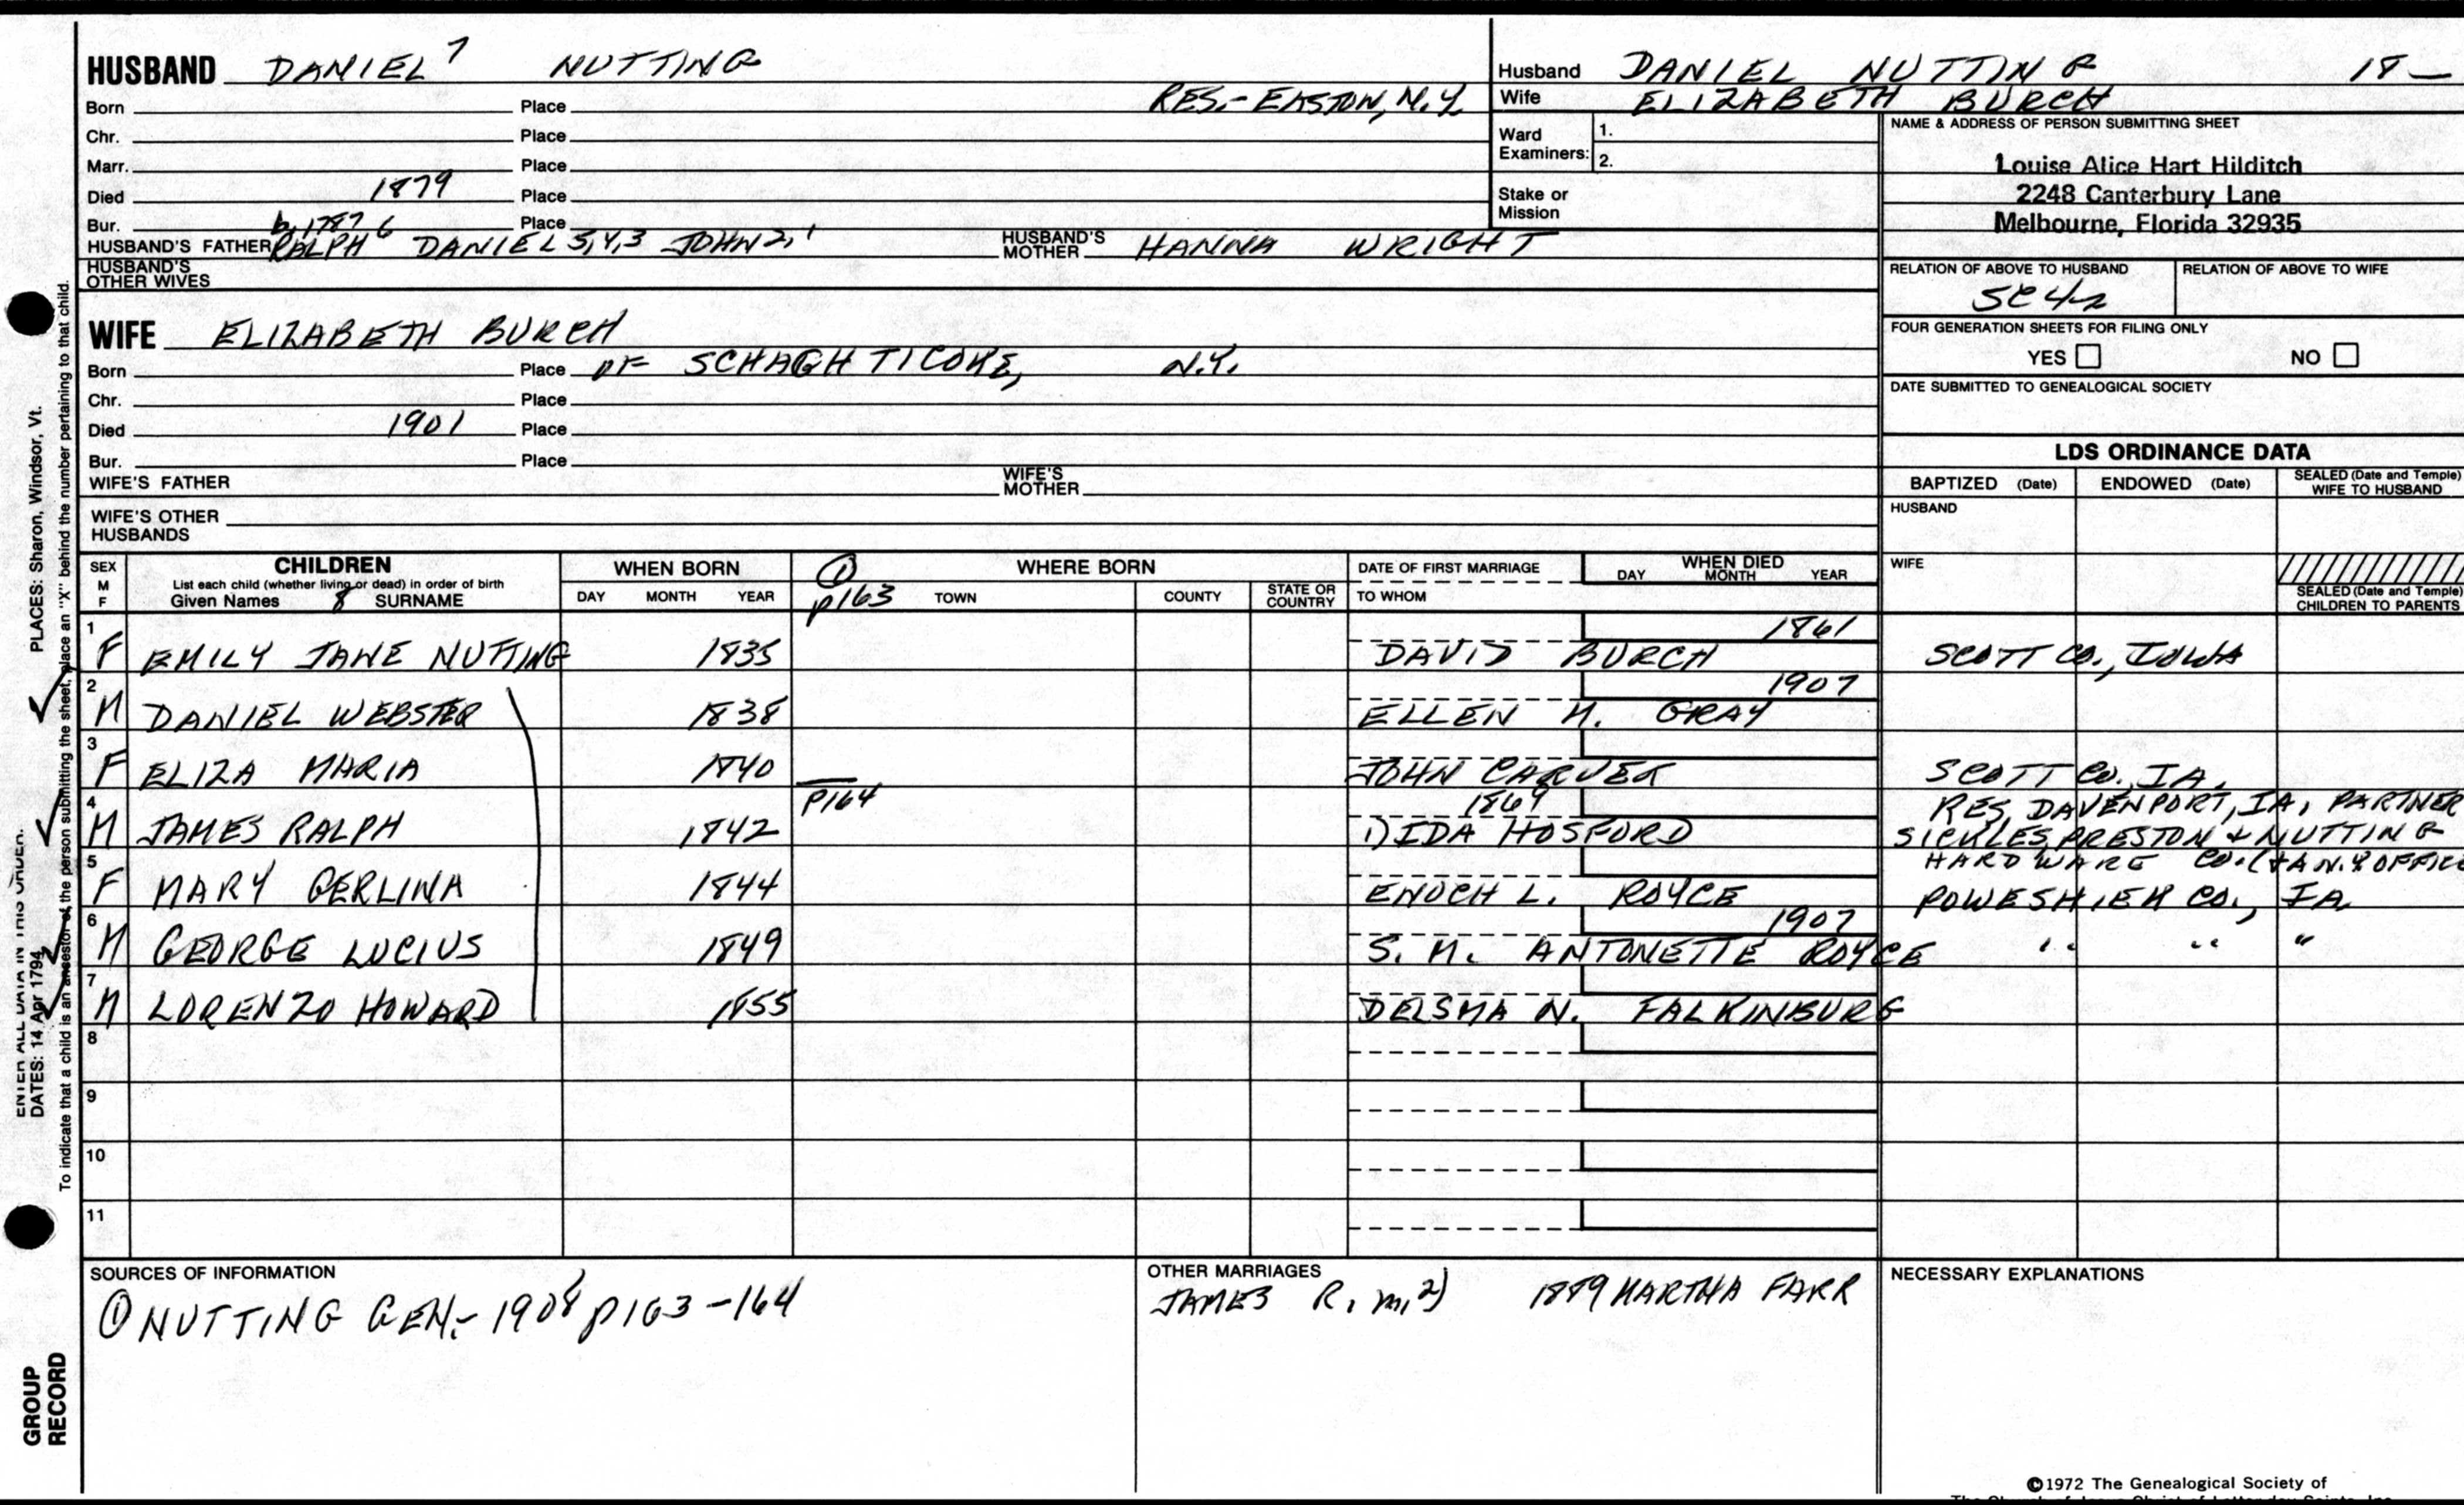 HUSBAND DANIEL 7 NUTTING
Born Place RES.- EASTON, N.Y.
Chr. Place
Marr. Place
Died 1879 Place
Bur. Place
b. 1787 6
HUSBAND'S FATHER RALPH DANIEL 5,4,3 JOHN 2,1 HUSBAND'S MOTHER HANNA WRIGHT
HUSBAND'S OTHER WIVES
WIFE ELIZABETH BURCH
Born Place OF SCHAGHTICOKE, N.Y.
Chr. Place
Died 1901 Place
Bur. Place
WIFE'S FATHER WIFE'S MOTHER
WIFE'S OTHER HUSBANDS
Husband DANIEL NUTTING 18—
Wife ELIZABETH BURCH
Ward Examiners: 1.
2.
Stake or Mission
NAME & ADDRESS OF PERSON SUBMITTING SHEET
Louise Alice Hart Hilditch
2248 Canterbury Lane
Melbourne, Florida 32935
RELATION OF ABOVE TO HUSBAND RELATION OF ABOVE TO WIFE
FOUR GENERATION SHEETS FOR FILING ONLY
YES NO
DATE SUBMITTED TO GENEALOGICAL SOCIETY
LDS ORDINANCE DATA
BAPTIZED (Date) ENDOWED (Date) SEALED (Date and Temple) WIFE TO HUSBAND
HUSBAND
WIFE
SEALED (Date and Temple) CHILDREN TO PARENTS
SEX M F CHILDREN WHEN BORN ① WHERE BORN DATE OF FIRST MARRIAGE WHEN DIED
List each child (whether living or dead) in order of birth
Given Names 8 SURNAME DAY MONTH YEAR p163 TOWN COUNTY STATE OR COUNTRY TO WHOM DAY MONTH YEAR
1 1861
F EMILY JANE NUTTING 1835 DAVID BURCH SCOTT CO., IOWA
2 1907
M DANIEL WEBSTER 1838 ELLEN M. GRAY
3
F ELIZA MARIA 1840 JOHN CARVER SCOTT CO. IA.
4 P164 1869 RES. DAVENPORT, IA, PARTNER
M JAMES RALPH 1842 1) IDA HOSFORD SICKLES, PRESTON & NUTTING
5 HARDWARE CO. (+A N.Y. OFFICE
F MARY GERLINA 1844 ENOCH L. ROYCE POWESHIEK CO., IA
6 1907
M GEORGE LUCIUS 1849 S. M. ANTONETTE ROYCE " " "
7
M LORENZO HOWARD 1855 DELSMA N. FALKINBURG
8
9
10
11
SOURCES OF INFORMATION
① NUTTING GEN.- 1908 p163-164
OTHER MARRIAGES
JAMES R. m. 2) 1889 MARTHA FARR
NECESSARY EXPLANATIONS
©1972 The Genealogical Society of
The Church of Jesus Christ of Latter-day Saints, Inc.
ENTER ALL DATA IN THIS ORDER:
DATES: 14 Apr 1794 PLACES: Sharon, Windsor, Vt.
To indicate that a child is an ancestor of the person submitting the sheet, place an "X" behind the number pertaining to that child.
GROUP RECORD